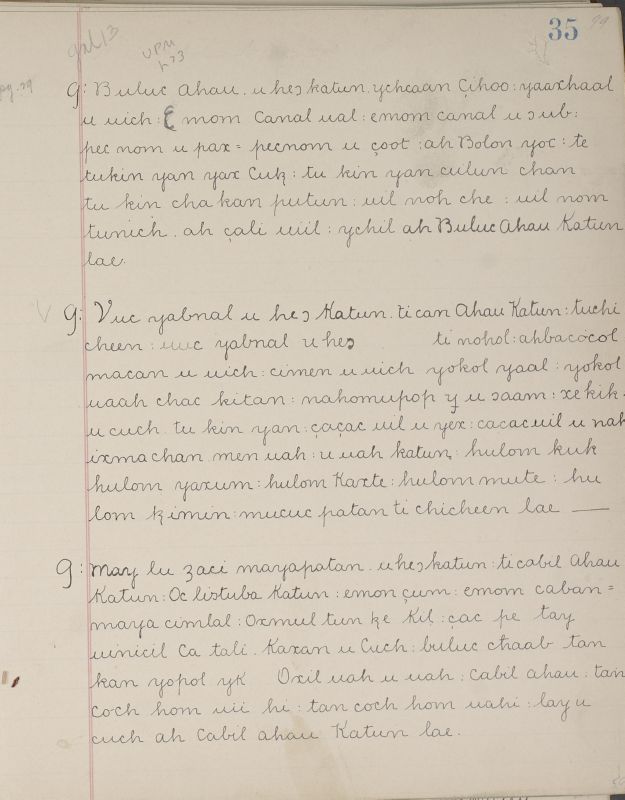 35
79
gal 13
UPM
h 23
pg. 29
9: Buluc ahau. u heɔ katun. ychcaan çihoo: yaaxhaal
u uich: Emom Canal ual: emom canal u ɔub:
pec nom u pax = pecnom u çoot: ah Bolon yoc: te
tukin yan yax Cutz: tu kin yan culun chan
tu kin chakan putun: uil noh che: uil nom
tunich. ah çali uiil: ychil ah Buluc Ahau Katun
lae.
9: Vuc yabnal u heɔ Katun. ti can Ahau Katun: tuchi
cheen: uuc yabnal u heɔ ti nohol: ahbacocol
macan u uich: cimen u uich yokol yaal: yokol
uaah chac kitan: nahomupop y u ɔaam: xekik.
u cuch tu kin yan: çaçac uil u yex: cacacuil u nak
ixmachan men uah: u uah katun: hulom kuk
hulom yaxum: hulom Kaxte: hulom mute: hu
lom tzimin: mucuc patan ti chicheen lae —
9: may lu zaci mayapatan. u heɔ katun: ti cabil Ahau
Katun: Oc listuba Katun: emon çum: emom caban =
maya cimlal: Oxmul tun tze Kil: çac pe tay
uinicil Ca tali. Kaxan u Cuch: buluc chaab tan
kan yopol yk Oxil uah u uah: Cabil ahau: tan
coch hom uii hi: tan coch hom uahi: lay u
cuch ah Cabil ahau Katun lae.